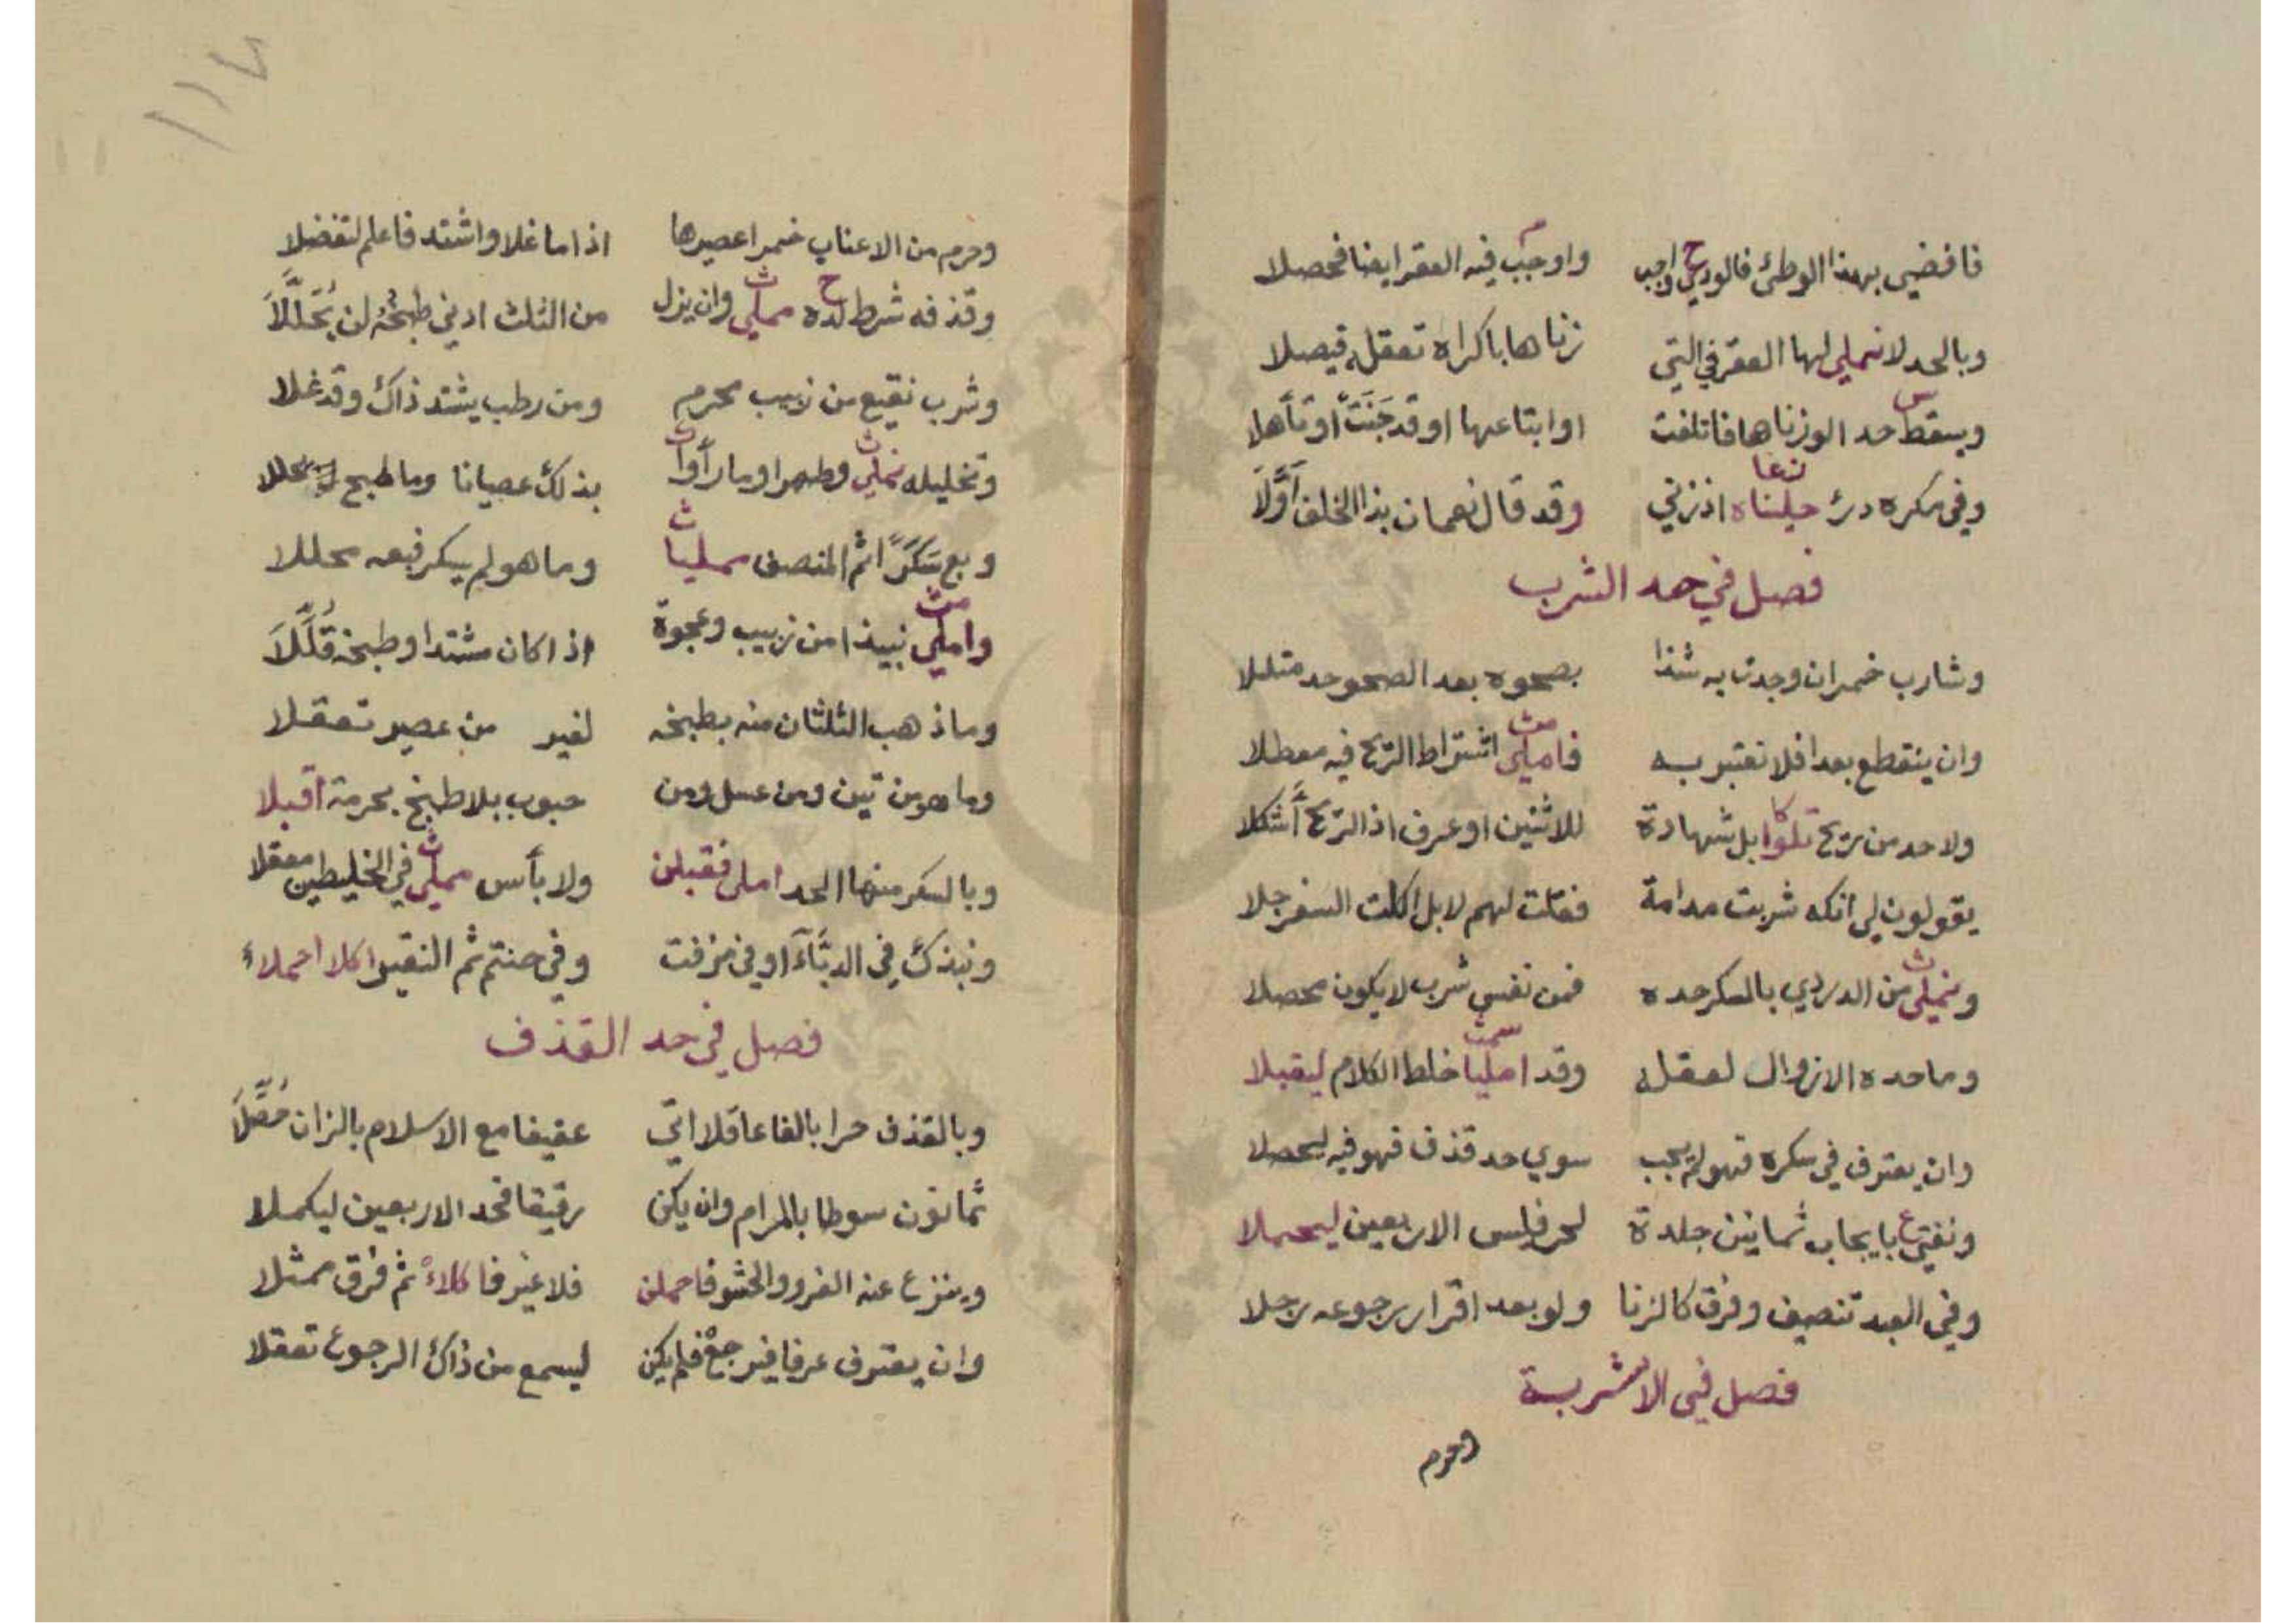 فافضي بهذا الوطئ فالودي واجب واوجب فيه العقر ايضا فحصلا
وبالحد لا نملي لها العقر في التي زناها باكراه تعقله فيصلا
ويسقط حد الو زناها فاتلفت او ابتاعها او قد جنت او تأهلا
وفي سكره درئ جلناه اذ زني وقد قال نعمان بذا الخلف اولا
فصل في حد الشرب
وشارب خمر ان وجدت به شذا بصحوه بعد الصحو حد متللا
وان ينقطع بعدا فلا تعتبر به فاملي اشتراط الريح فيه معطلا
ولا حد من ريح تلوا بل شهادة للاثنين او عرف اذ الريح أشكلا
يقولون لي انكه شربت مدامة فقلت لهم لا بل اكلت السفرجلا
ونملي من الدردي بالسكر حده فمن نفس شرب لا يكون محصلا
وما حده الا زوال لعقله وقد امليا خلط الكلام ليقبلا
وان يعترف في سكره فهو لم يجب سوي حد قذف فهو فيه ليحصلا
ونفتي بايجاب ثمانين جلدة لحر فليس الاربعين ليحملا
وفي العبد تنصيف وفرق كالزنا ولو بعد اقرار رجوعه رجلا
فصل في الاشربة
وحرم
١١٧
وحرم من الاعناب خمرا عصيرها اذا ما غلا واشتد فاعلم لتفضلا
وقذفه شرط لده مملي وان يزل من الثلث ادني طبخه لن يحللا
وشرب نقيع من زبيب محرم ومن رطب يشتد ذاك وقد غلا
وتخليله نملي وطهرا وما رأوا بذلك عصيانا وما طبخ يحللا
وبع سكرا ثم المنصف مملياً وما هو لم يسكر فبعه محللا
واملي نبيذا من زبيب وعجوة اذا كان مشتدا وطبخه قللا
وما ذهب الثلثان منه بطبخه لغير من عصير تعقلا
وما هو من تين ومن عسل ومن حبوب بلا طبخ بحرمة اقبلا
وبالسكر منها الحد املي فقبلن ولا بأس مملي في الخليطين معقلا
ونبذك في الدباء او في مزفت وفي حنتم ثم النقير اكلا احملاء
فصل في حد القذف
وبالقذف حرا بالغا عاقلا اتي عفيفا مع الاسلام بالزان مصلا
ثمانون سوطا بالمرام وان يكن رقيقا فحد الاربعين ليكملا
وينزع عنه الفرو والحشو فاحملن فلا غير فا كلاء ثم فرق ممثلا
وان يعترف عرفا فيرجع فلم يكن ليسمع من ذاك الرجوع تعقلا